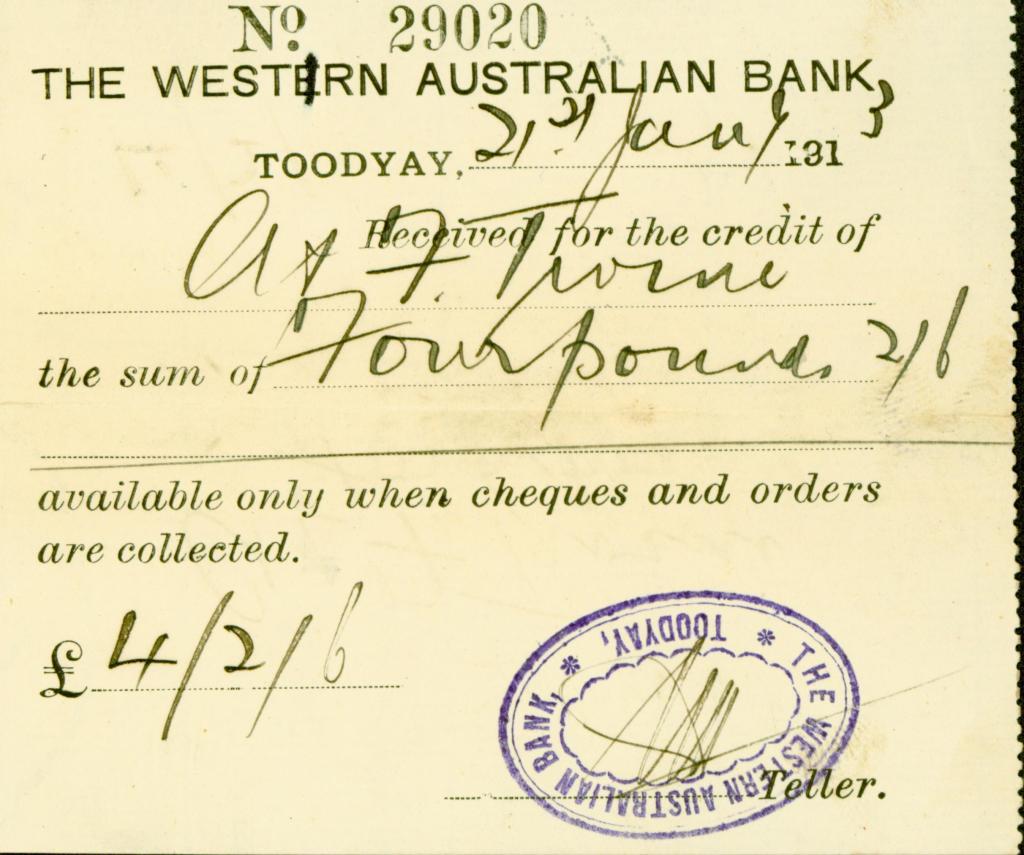 No. 29020
THE WESTERN AUSTRALIAN BANK,
TOODYAY, 21st Jany 1913
Received for the credit of
F.
the sum of Four pounds 2/6
available only when cheques and orders
are collected.
£ 4/2/6
THE WESTERN AUSTRALIAN BANK, * TOODYAY, *
Teller.